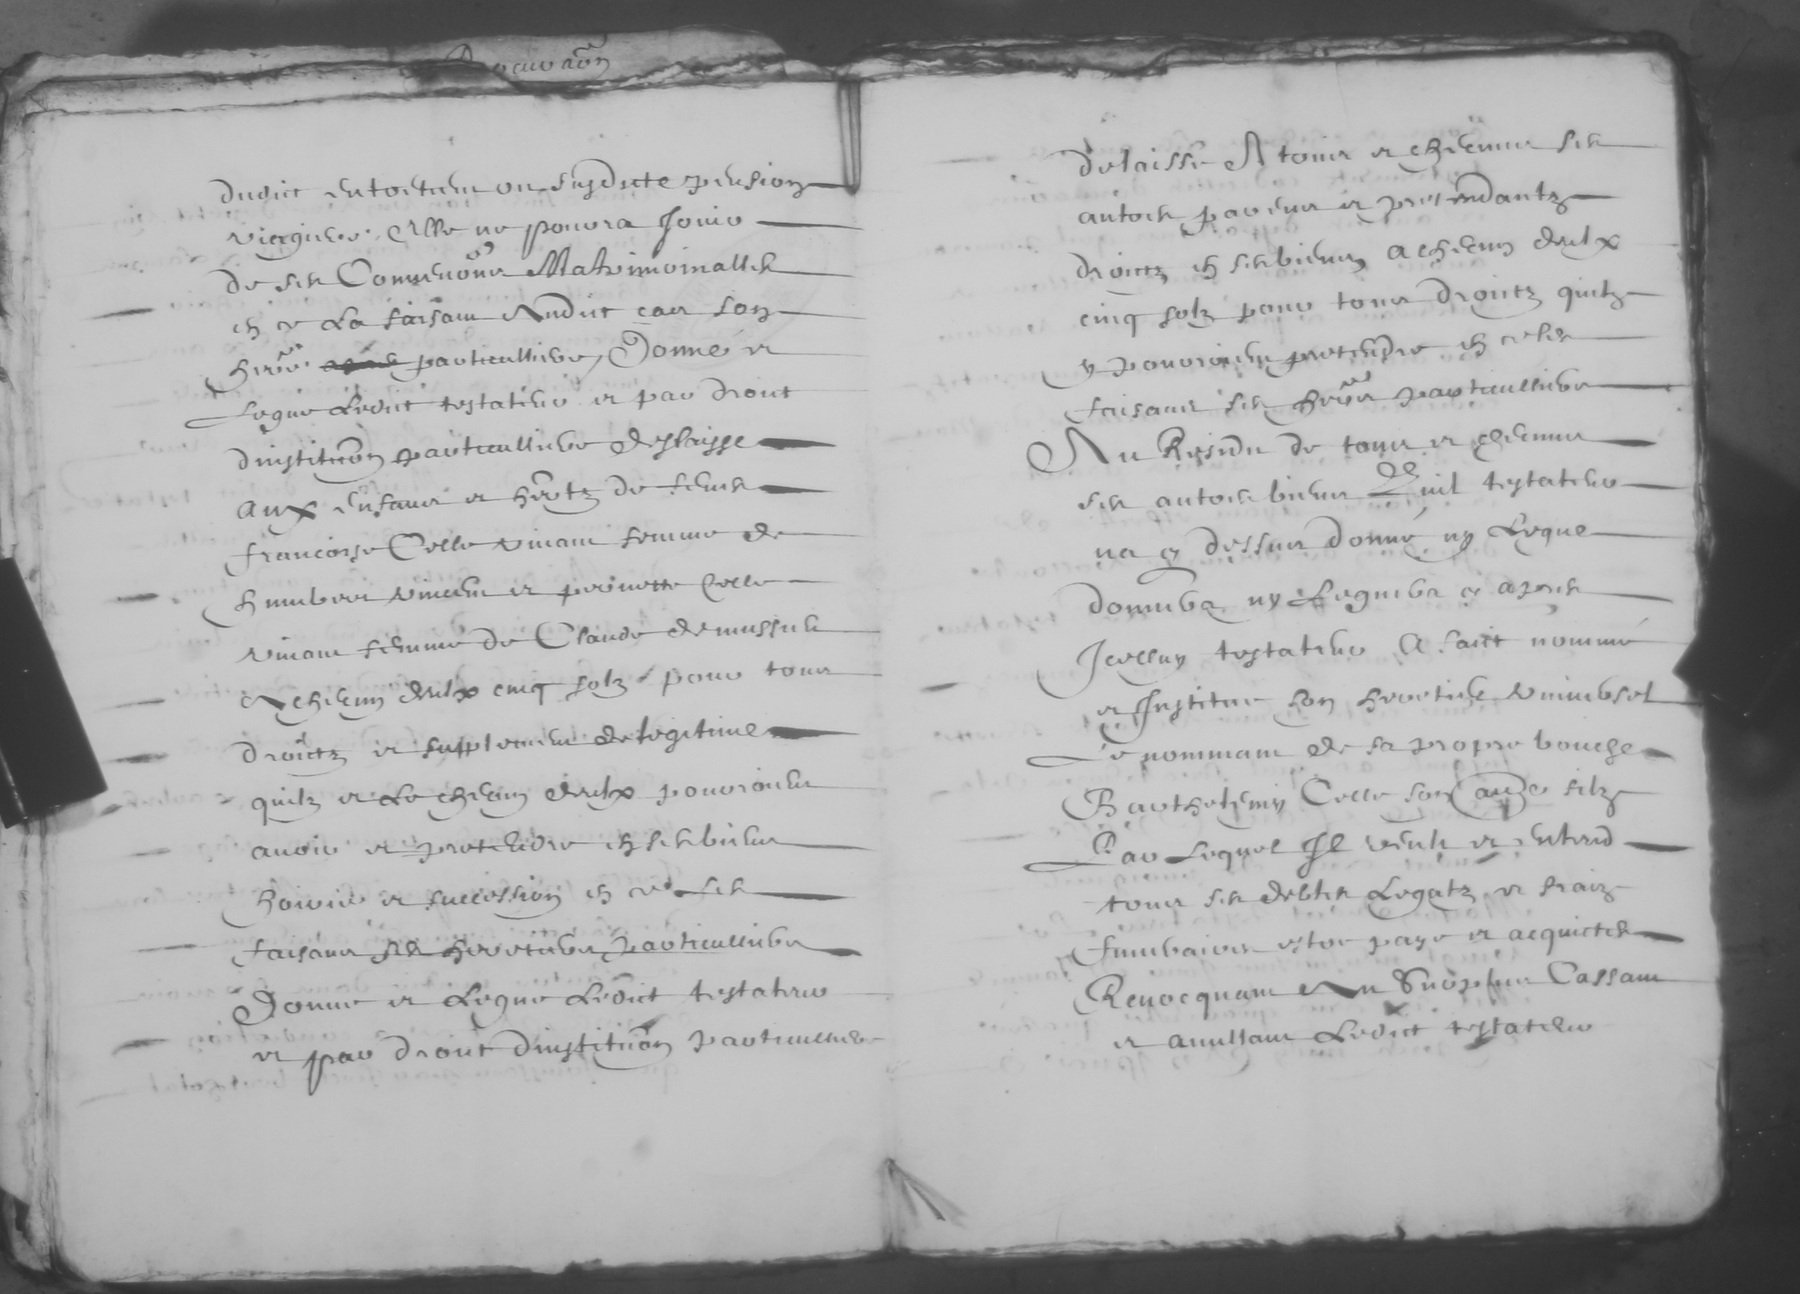 Procuraõn
dudict entretien ou susdicte pension
viagiere, Elle ne pourra Jouir
de ses Convenõns Matrimonialles
Et ce La faisant Audict cas son
herẽe particulliere, Donne et
Legue Ledict testateur et par droit
dinstituõn particulliere deslaisse
aux enfans et hẽrtz de feues
francoise Celle vivant femme de
humbert vincent et pernette Celle
vivant femme de Claude demussiés
A chẽcun deulx cinq solz pour tous
droitz et supplement de legitime
quilz et Le chẽcun deulx pouroient
avoir et pretendre En ses biens
hoirie et succession En ce Les
faisant ses heretiers particulliers
Donne et Legue Ledict testateur
et par droit dinstituõn particulliere
delaisse A tous et chẽcuns ses
autres parens et pretendantz
droictz En ses biens a chẽcun deulx
cinq solz pour tous droictz quilz
y pourroient pretendre En ce les
faisant ses herẽes particulliers
Au Residu de tous et chẽcuns
ses autres biens Quil testateur
na cy dessus donné ny Legue
donnera ny Leguera cy apres
Icelluy testateur A faict nommé
et Institue son heretier universel
Le nommant de sa propre bouche
Barthelemy Celle son aultre filz
Par Lequel Il veult et entend
tous ses debtes Legatz et fraiz
funeraires estre paye et acquictes
Revocquant Au Surplus Cassant
et anullant Ledict testateur